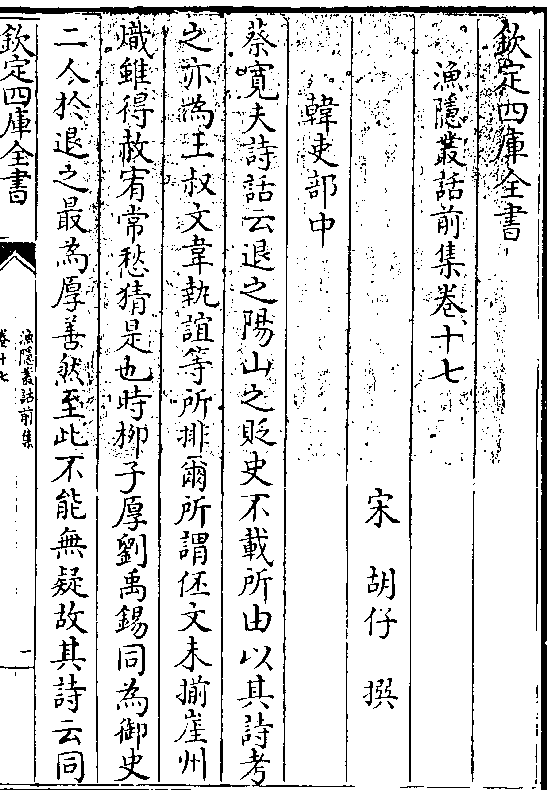 欽定四庫全書
漁隱叢話前集卷十七
宋 胡仔 撰
韓吏部中
蔡寛夫詩話云退之陽山之貶史不載所由以其詩考
之亦為王叔文韋執誼等所排爾所謂伾文未揃崖州
熾雖得赦宥常愁猜是也時柳子厚劉禹錫同為御史
二人於退之最為厚善然至此不能無疑故其詩云同
欽定四庫全書
漁隱叢話前集
卷十七
一